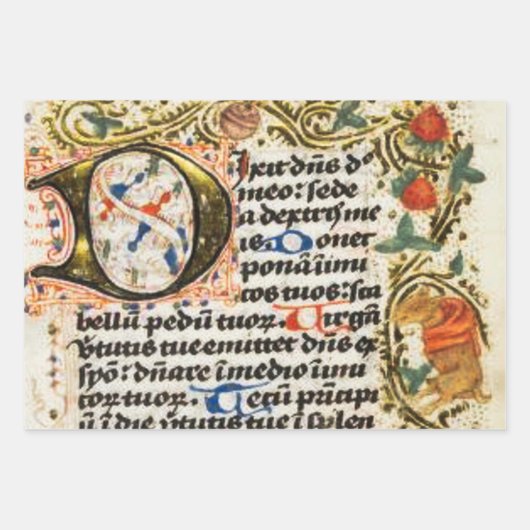 Dixit dn̄s dº
meo: sede
a dextris me
is. Donec
ponā inimi
cos tuos: sca
bellū pedū tuoꝝ. Virgā
v̄tutis tue emittet dn̄s ex
syō: dn̄are ī medio inimi
coꝝ tuoꝝ. Tecū prīcipi
ū ī die v̄tutis tue ī splen